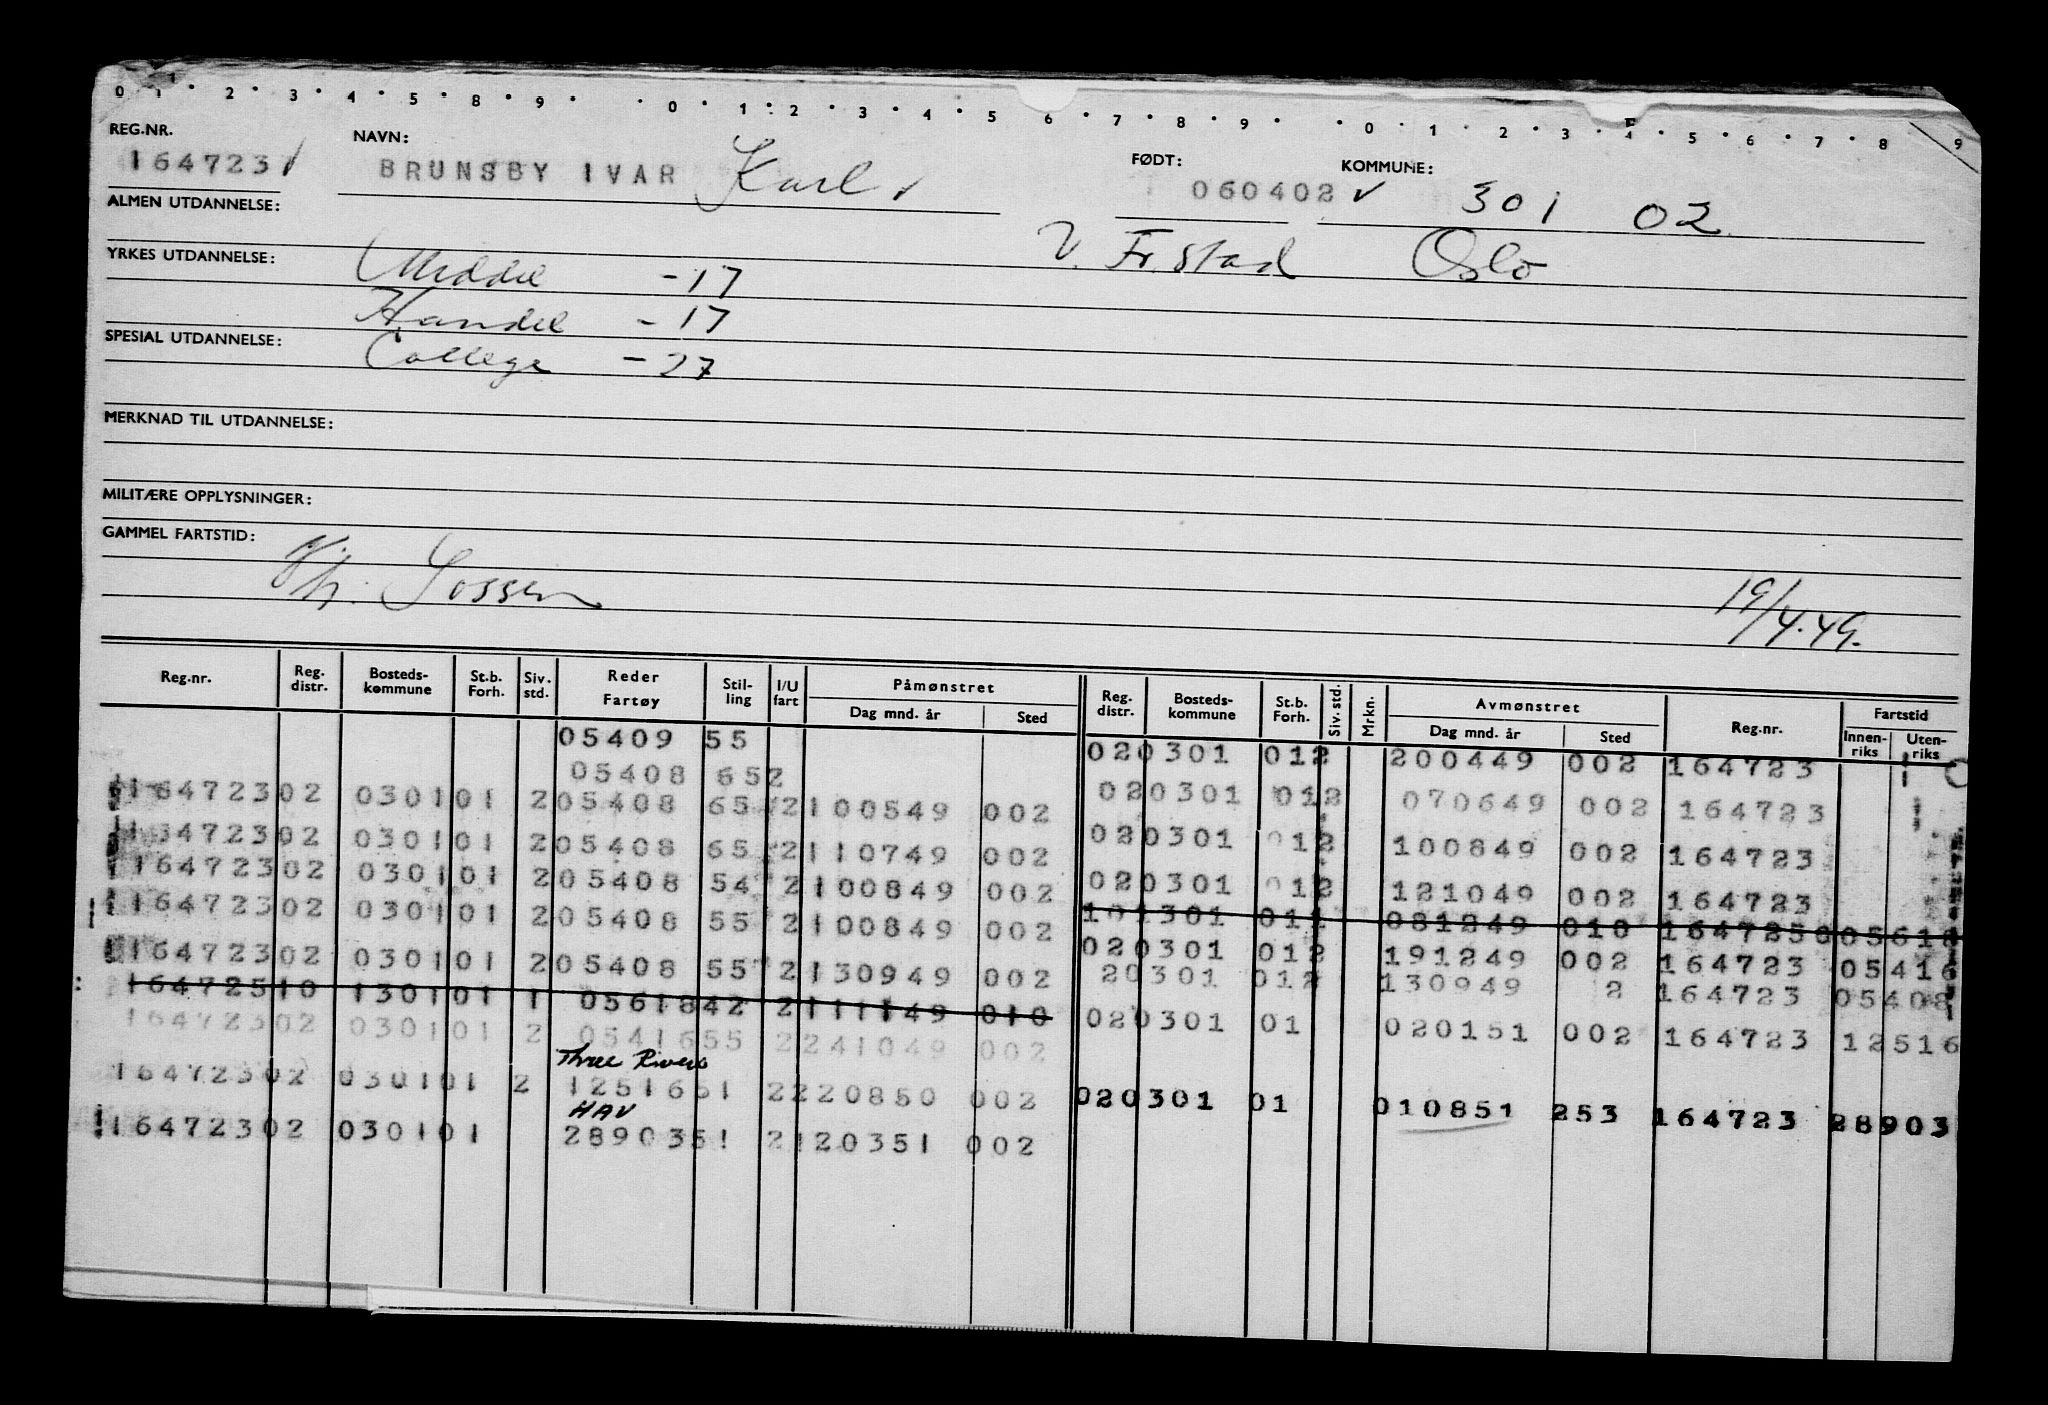 0 1 2 3 4 5 8 9 0 1 2 3 4 5 6 7 8 9 0 1 2 3 4 5 6 7 8 9
REG.NR. NAVN: FØDT: KOMMUNE:
164723 BRUNSBY IVAR Karl 060402 301 02
ALMEN UTDANNELSE: V. Fr.stad Oslo
YRKES UTDANNELSE: Middel -17
Handel -17
SPESIAL UTDANNELSE: College -27
MERKNAD TIL UTDANNELSE:
MILITÆRE OPPLYSNINGER:
GAMMEL FARTSTID:
19/4.49.
Reg.nr. Reg. distr. Bosteds-kommune St.b. Forh. Siv. std. Reder Fartøy Stil-ling I/U fart Påmønstret Dag mnd. år Sted Reg. distr. Bosteds-kommune St.b. Forh. Siv. std. Mrkn. Avmønstret Dag mnd. år Sted Reg.nr. Fartstid Innen-riks Uten-riks
05409 55 020301 012 200449 002 164723
05408 652
164723 02 0301 01 2 05408 65 2 100549 002 020301 012 070649 002 164723
164723 02 0301 01 2 05408 65 2 110749 002 020301 012 100849 002 164723
164723 02 0301 01 2 05408 54 2 100849 002 020301 012 121049 002 164723
164723 02 0301 01 2 05408 55 2 100849 002 101301 011 081249 010 164725 05618
164723 02 0301 01 2 05408 55 2 130949 002 020301 012 191249 002 164723 05416
20301 012 130949 2 164723 05408
164725 10 1301 01 1 05618 42 2 111149 010
164723 02 0301 01 2 05416 55 2 241049 002 020301 01 020151 002 164723 12516
Three Rivers
164723 02 0301 01 2 12516 51 2 220850 002 020301 01 010851 253 164723 28903
HAV
164723 02 0301 01 28903 51 2 120351 002